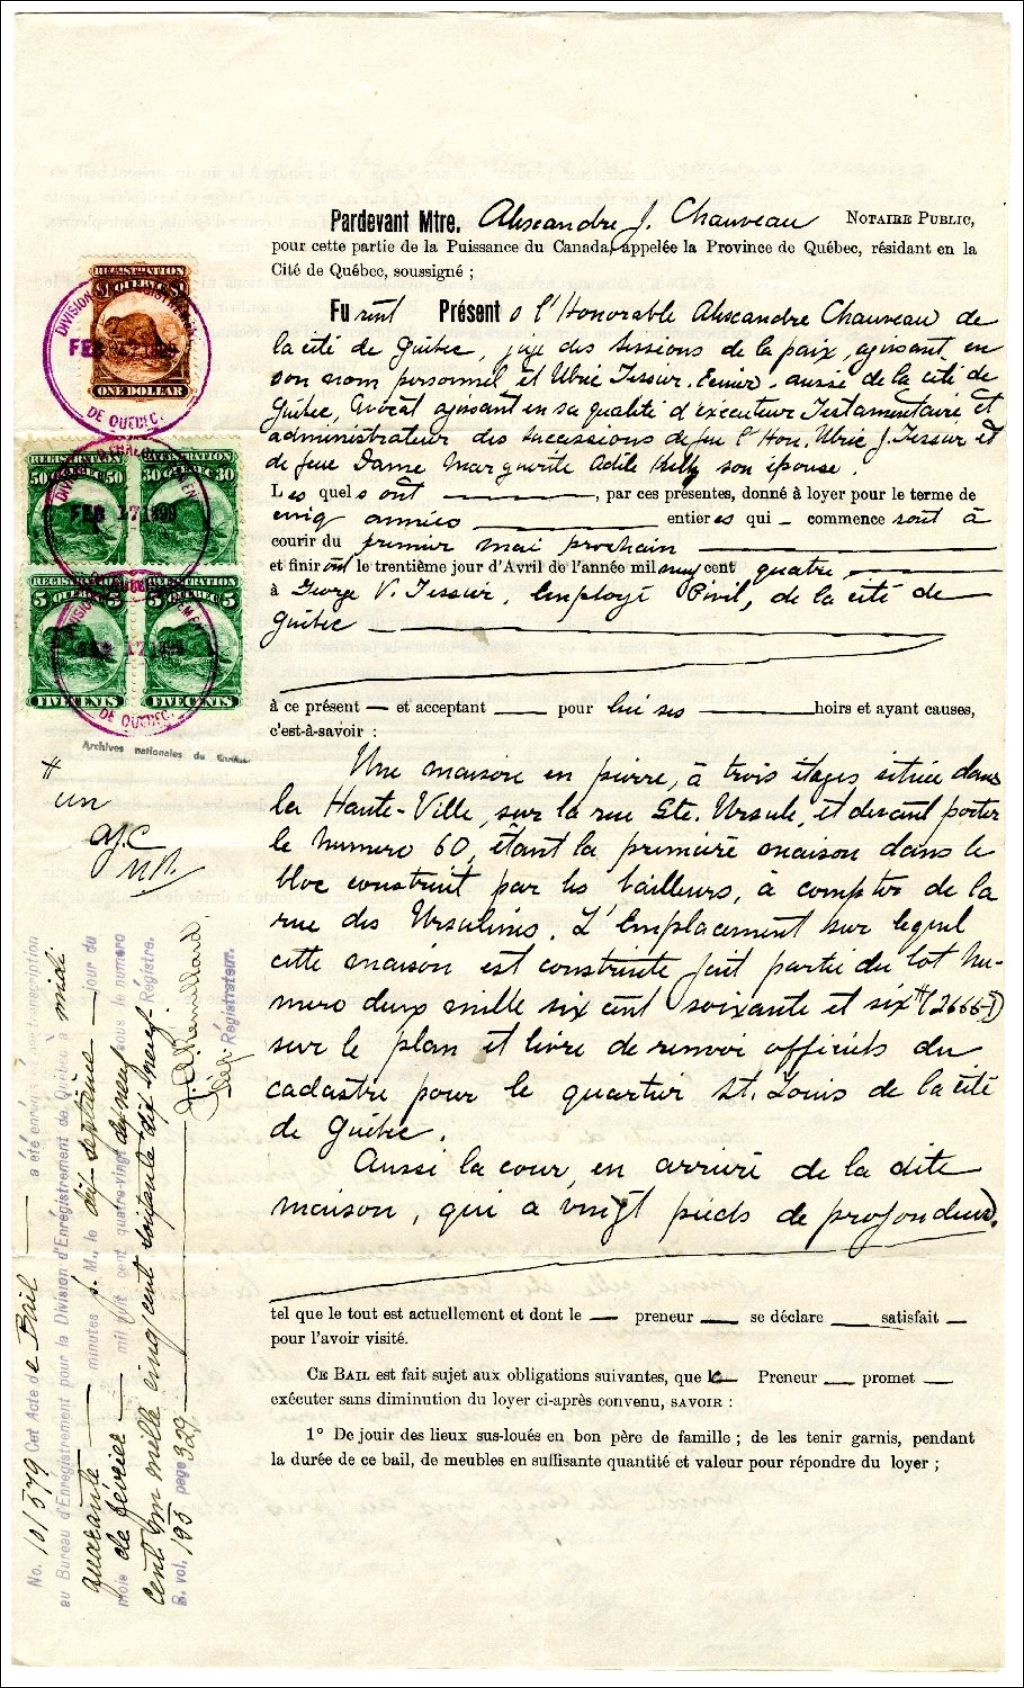 Pardevant Mtre. Alexandre J. Chauveau NOTAIRE PUBLIC,
pour cette partie de la Puissance du Canada, appelée la Province de Québec, résidant en la
Cité de Québec, soussigné ;
Furent Présents l'Honorable Alexandre Chauveau de
la cité de Québec, juge des sessions de la paix, agissant en
son nom personnel, et Ulric Tessier, Ecuier, aussi de la cité de
Québec, Avocat agissant en sa qualité d'exécuteur Testamentaire et
administrateur des successions de feu l'Hon. Ulric J. Tessier et
de feue Dame Marguerite Adèle Kelly son épouse.
Lesquels ont, par ces présentes, donné à loyer pour le terme de
cinq années entieres qui commenceront à
courir du premier mai prochain
et finiront le trentième jour d'Avril de l'année mil neuf cent quatre,
à George V. Tessier, Employé Civil, de la cité de
Québec
à ce présent et acceptant pour lui ses hoirs et ayant causes,
c'est-à-savoir :
Une maison en pierre, à trois étages située dans
la Haute-Ville, sur la rue Ste. Ursule, et devant porter
le numero 60, étant la première maison dans le
bloc construit par les bailleurs, à compter de la
rue des Ursulines. L'Emplacement sur lequel
cette maison est construite fait partie du lot nu-
mero deux mille six cent soixante et six # (2666-1)
sur le plan et livre de renvoi officiels du
cadastre pour le quartier St. Louis de la cité
de Québec.
Aussi la cour, en arrière de la dite
maison, qui a vingt pieds de profondeur.
tel que le tout est actuellement et dont le preneur se déclare satisfait
pour l'avoir visité.
CE BAIL est fait sujet aux obligations suivantes, que le Preneur promet
exécuter sans diminution du loyer ci-après convenu, SAVOIR :
1° De jouir des lieux sus-loués en bon père de famille ; de les tenir garnis, pendant
la durée de ce bail, de meubles en suffisante quantité et valeur pour répondre du loyer ;
REGISTRATION
QUEBEC
ONE DOLLAR
DIVISION D'ENREGISTREMENT
FEB 17 1899
DE QUEBEC.
REGISTRATION REGISTRATION
50 50 30 30
FEB 17 1899
REGISTRATION REGISTRATION
5 QUEBEC 5 5 QUEBEC 5
FEB 17 1899
FIVE CENTS FIVE CENTS
DE QUEBEC.
Archives nationales du Québec
#
un
AJC
N.P.
No. 101579 Cet Acte de Bail a été enrégistré par transcription
au Bureau d'Enrégistrement pour la Division d'Enrégistrement de Québec à midi
quarante minutes P. M., le dix-septième jour du
mois de février mil huit cent quatre-vingt dix neuf sous le numero
cent un mille cinq cent soixante dix neuf Régistre.
B. vol. 195 page 329
Dép. Régistrateur.